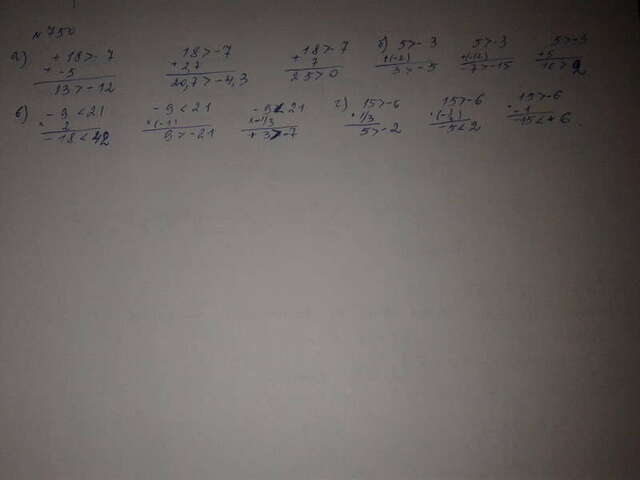 № 750
а) + 18 > -7 18 > -7 + 18 > -7 б) 5 > -3 5 > -3 5 > -3
+ -5 + 2,7 7 +(-2) +(-12) + 5
13 > -12 20,7 > -4,3 25 > 0 3 > -5 -7 > -15 10 > 2
в) - 9 < 21 - 9 < 21 - 9 < 21 г) 15 > -6 15 > -6 15 > -6
× 2 ×(-1) × -1/3 × 1/3 · -1
- 18 < 42 9 > -21 + 3 > -7 5 > -2 -5 < 2 -15 < + 6